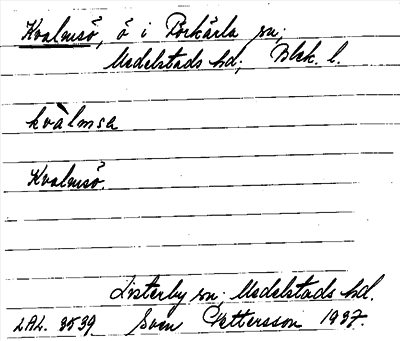 Kvalmsö, ö i Förkärla sn;
Medelstads hd; Blek. l.
kvàlmsa
Kvalmsö.
Listerby sn; Medelstads hd.
LAL. 3539 Sven Pettersson 1937.